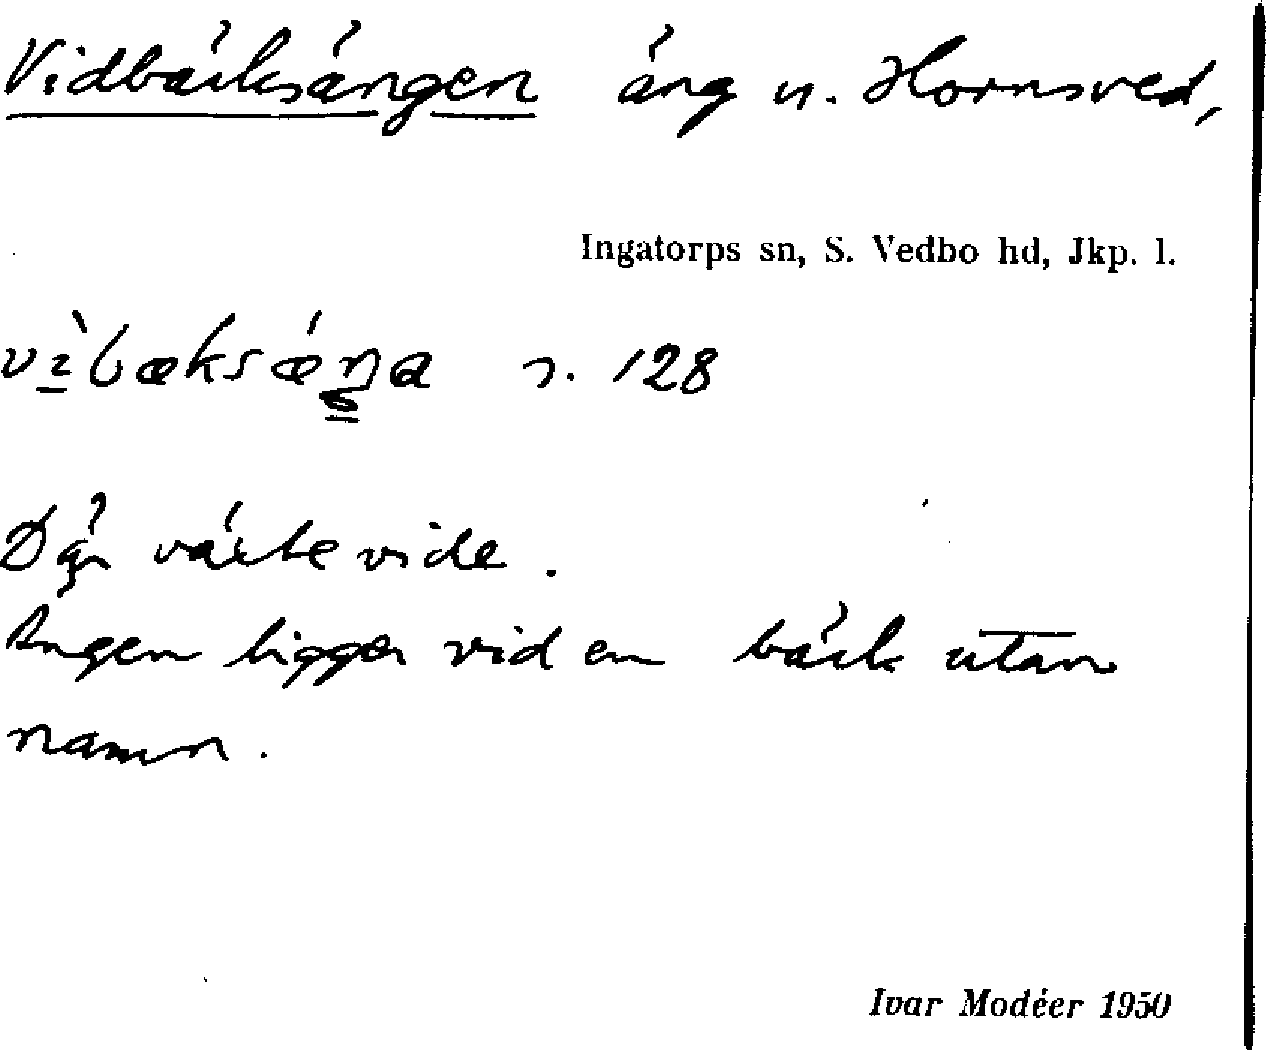 Vidbäcksängen äng u. Hornsved,
Ingatorps sn, S. Vedbo hd, Jkp. l.
s. 128
Där växte vide.
Ängen ligger vid en bäck utan
namn.
Ivar Modéer 1950